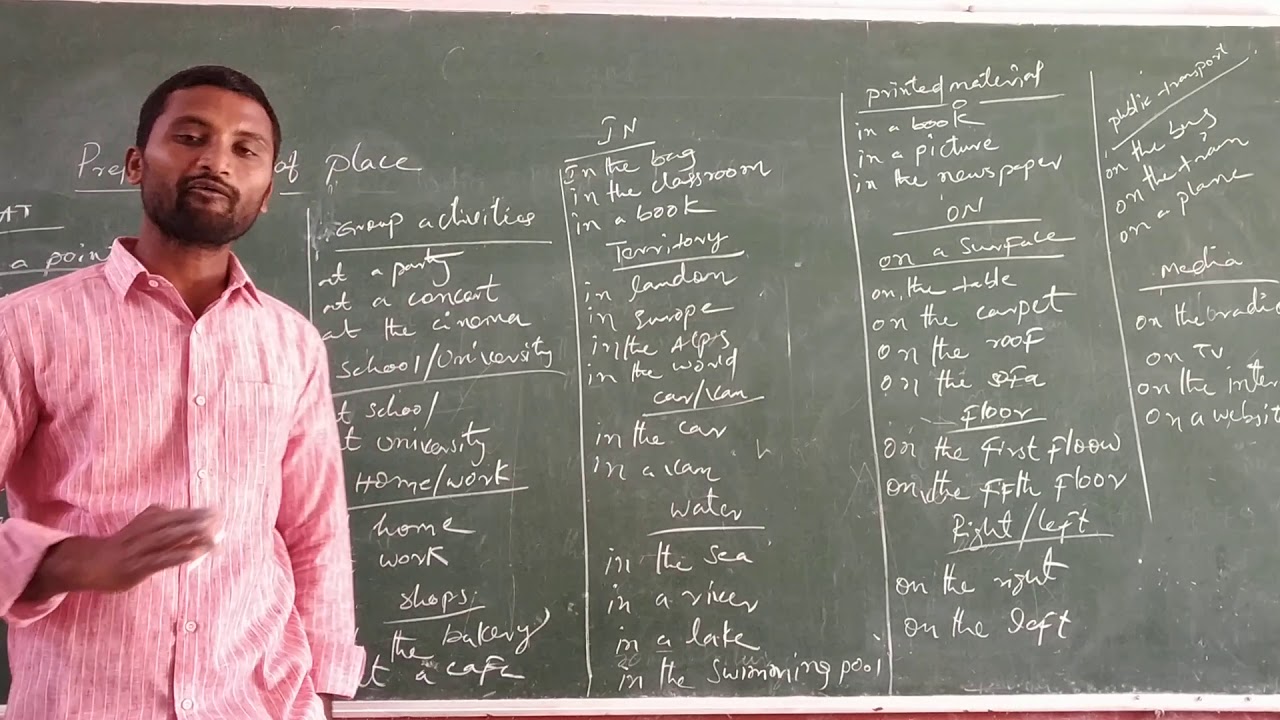 of place
AT
a point
Group activities
at a party
at a concert
at the cinema
school/University
t school
t University
Home/work
home
work
shops
the bakery
at a cafe
IN
In the bag
in the classroom
in a book
Territory
in London
in Europe
in the Alps
in the world
car/van
in the car
in a van
water
in the sea
in a river
in a lake
in the swimming pool
printed material
in a book
in a picture
in the newspaper
ON
on a surface
on the table
on the carpet
on the roof
on the sofa
Floor
on the first floor
on the fifth floor
Right/left
on the right
on the left
public transport
on the bus
on the train
on a plane
Media
on the radio
on TV
on the inter
on a websit